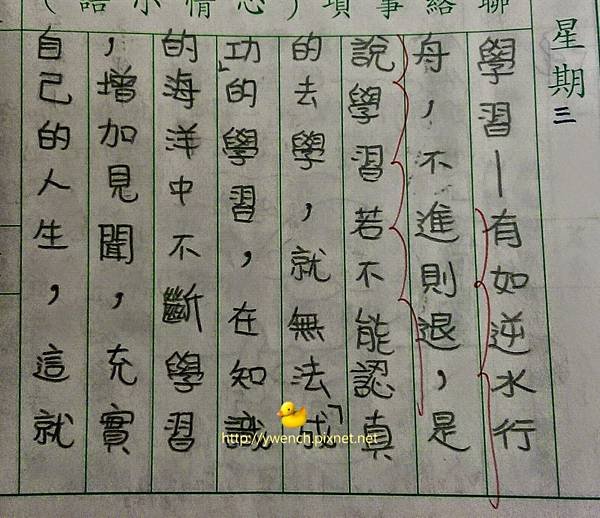 聯絡事項(心情小語)
星期三
學習—有如逆水行
舟,不進則退,是
說學習若不能認真
的去學,就無法「成
功」的學習,在知識
的海洋中不斷學習
,增加見聞,充實
自己的人生,這就
http://ywench.pixnet.net